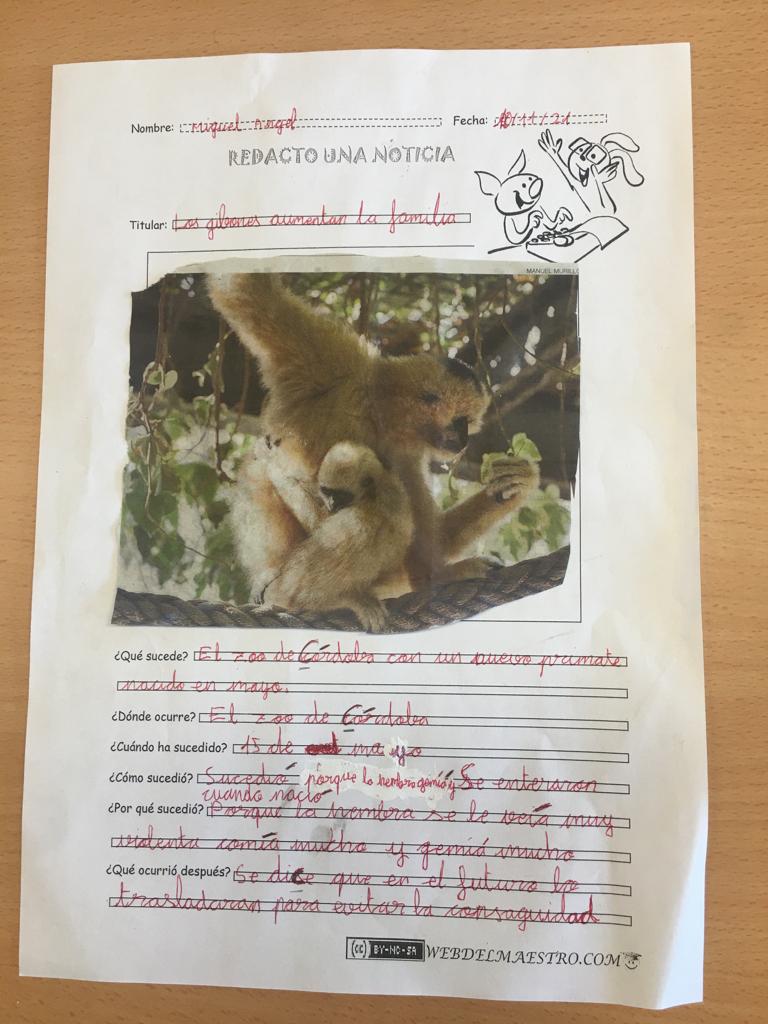 Nombre: Miguel Angel Fecha: 10/11/21
REDACTO UNA NOTICIA
Titular: Los gibones aumentan la familia
MANUEL MURILLO
¿Qué sucede? El zoo de Córdoba con un nuevo primate
nacido en mayo.
¿Dónde ocurre? El zoo de Córdoba
¿Cuándo ha sucedido? 15 de mayo
¿Cómo sucedió? Sucedió porque la hembra gemía y Se enteraron
cuando nació
¿Por qué sucedió? Porque la hembra se le veía muy
violenta comía mucho y gemía mucho
¿Qué ocurrió después? Se dice que en el futuro lo
trasladaran para evitar la consaguidad
(cc) BY-NC-SA WEBDELMAESTRO.COM